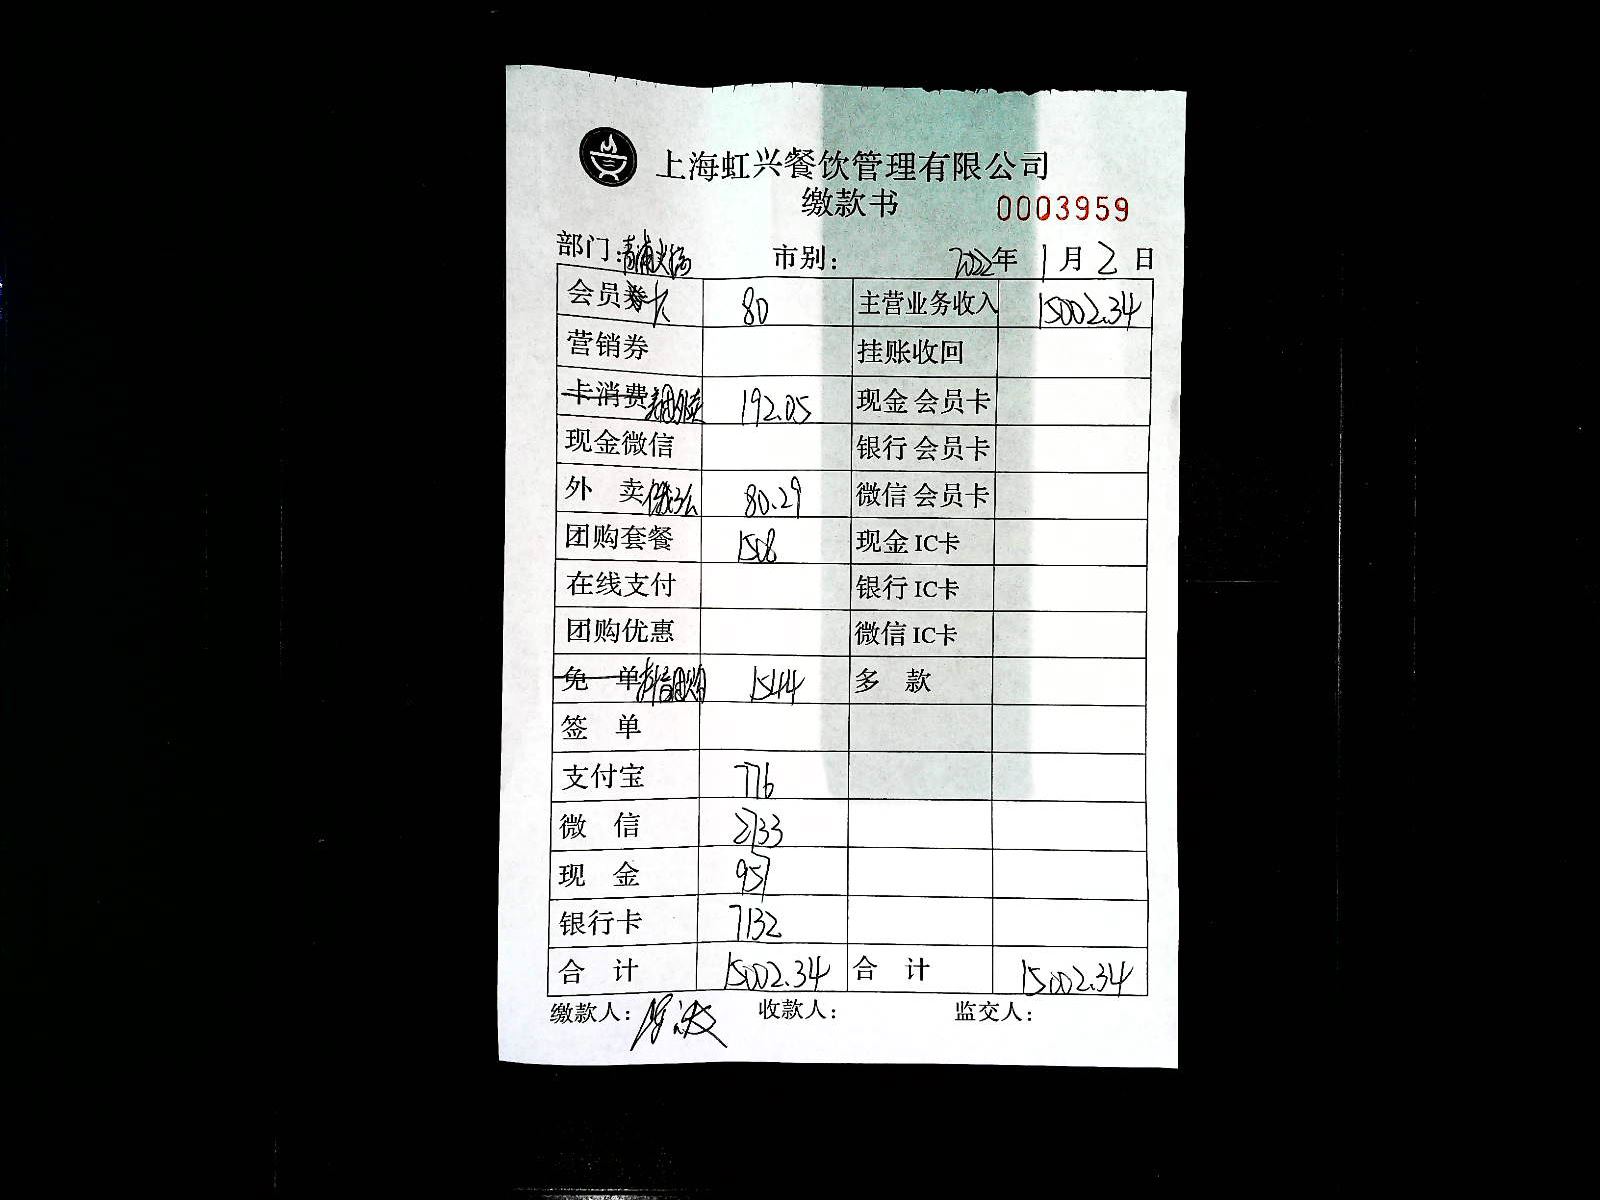 上海虹兴餐饮管理有限公司
缴款书 0003959
部门:青浦火锅 市别: 2022年1月2日
会员卡 80 主营业务收入 15002.34
营销券 挂账收回
卡消费美团外卖 192.05 现金 会员卡
现金微信 银行 会员卡
外 卖饿了么 80.29 微信 会员卡
团购套餐 1508 现金 IC卡
在线支付 银行 IC卡
团购优惠 微信 IC卡
免 单抖音团购 1544 多 款
签 单
支付宝 776
微 信 2133
现 金 957
银行卡 7132
合 计 15002.34 合 计 15002.34
缴款人: 收款人: 监交人: